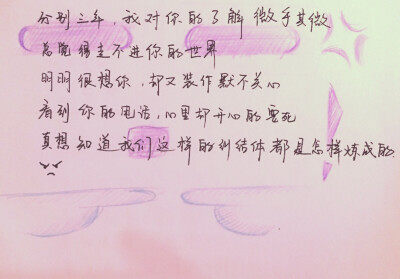 分别三年，我对你的了解微乎其微
总觉得走不进你的世界
明明很想你，却又装作默不关心
看到你的电话，心里却开心的要死
真想知道我们这样的纠结体都是怎样炼成的